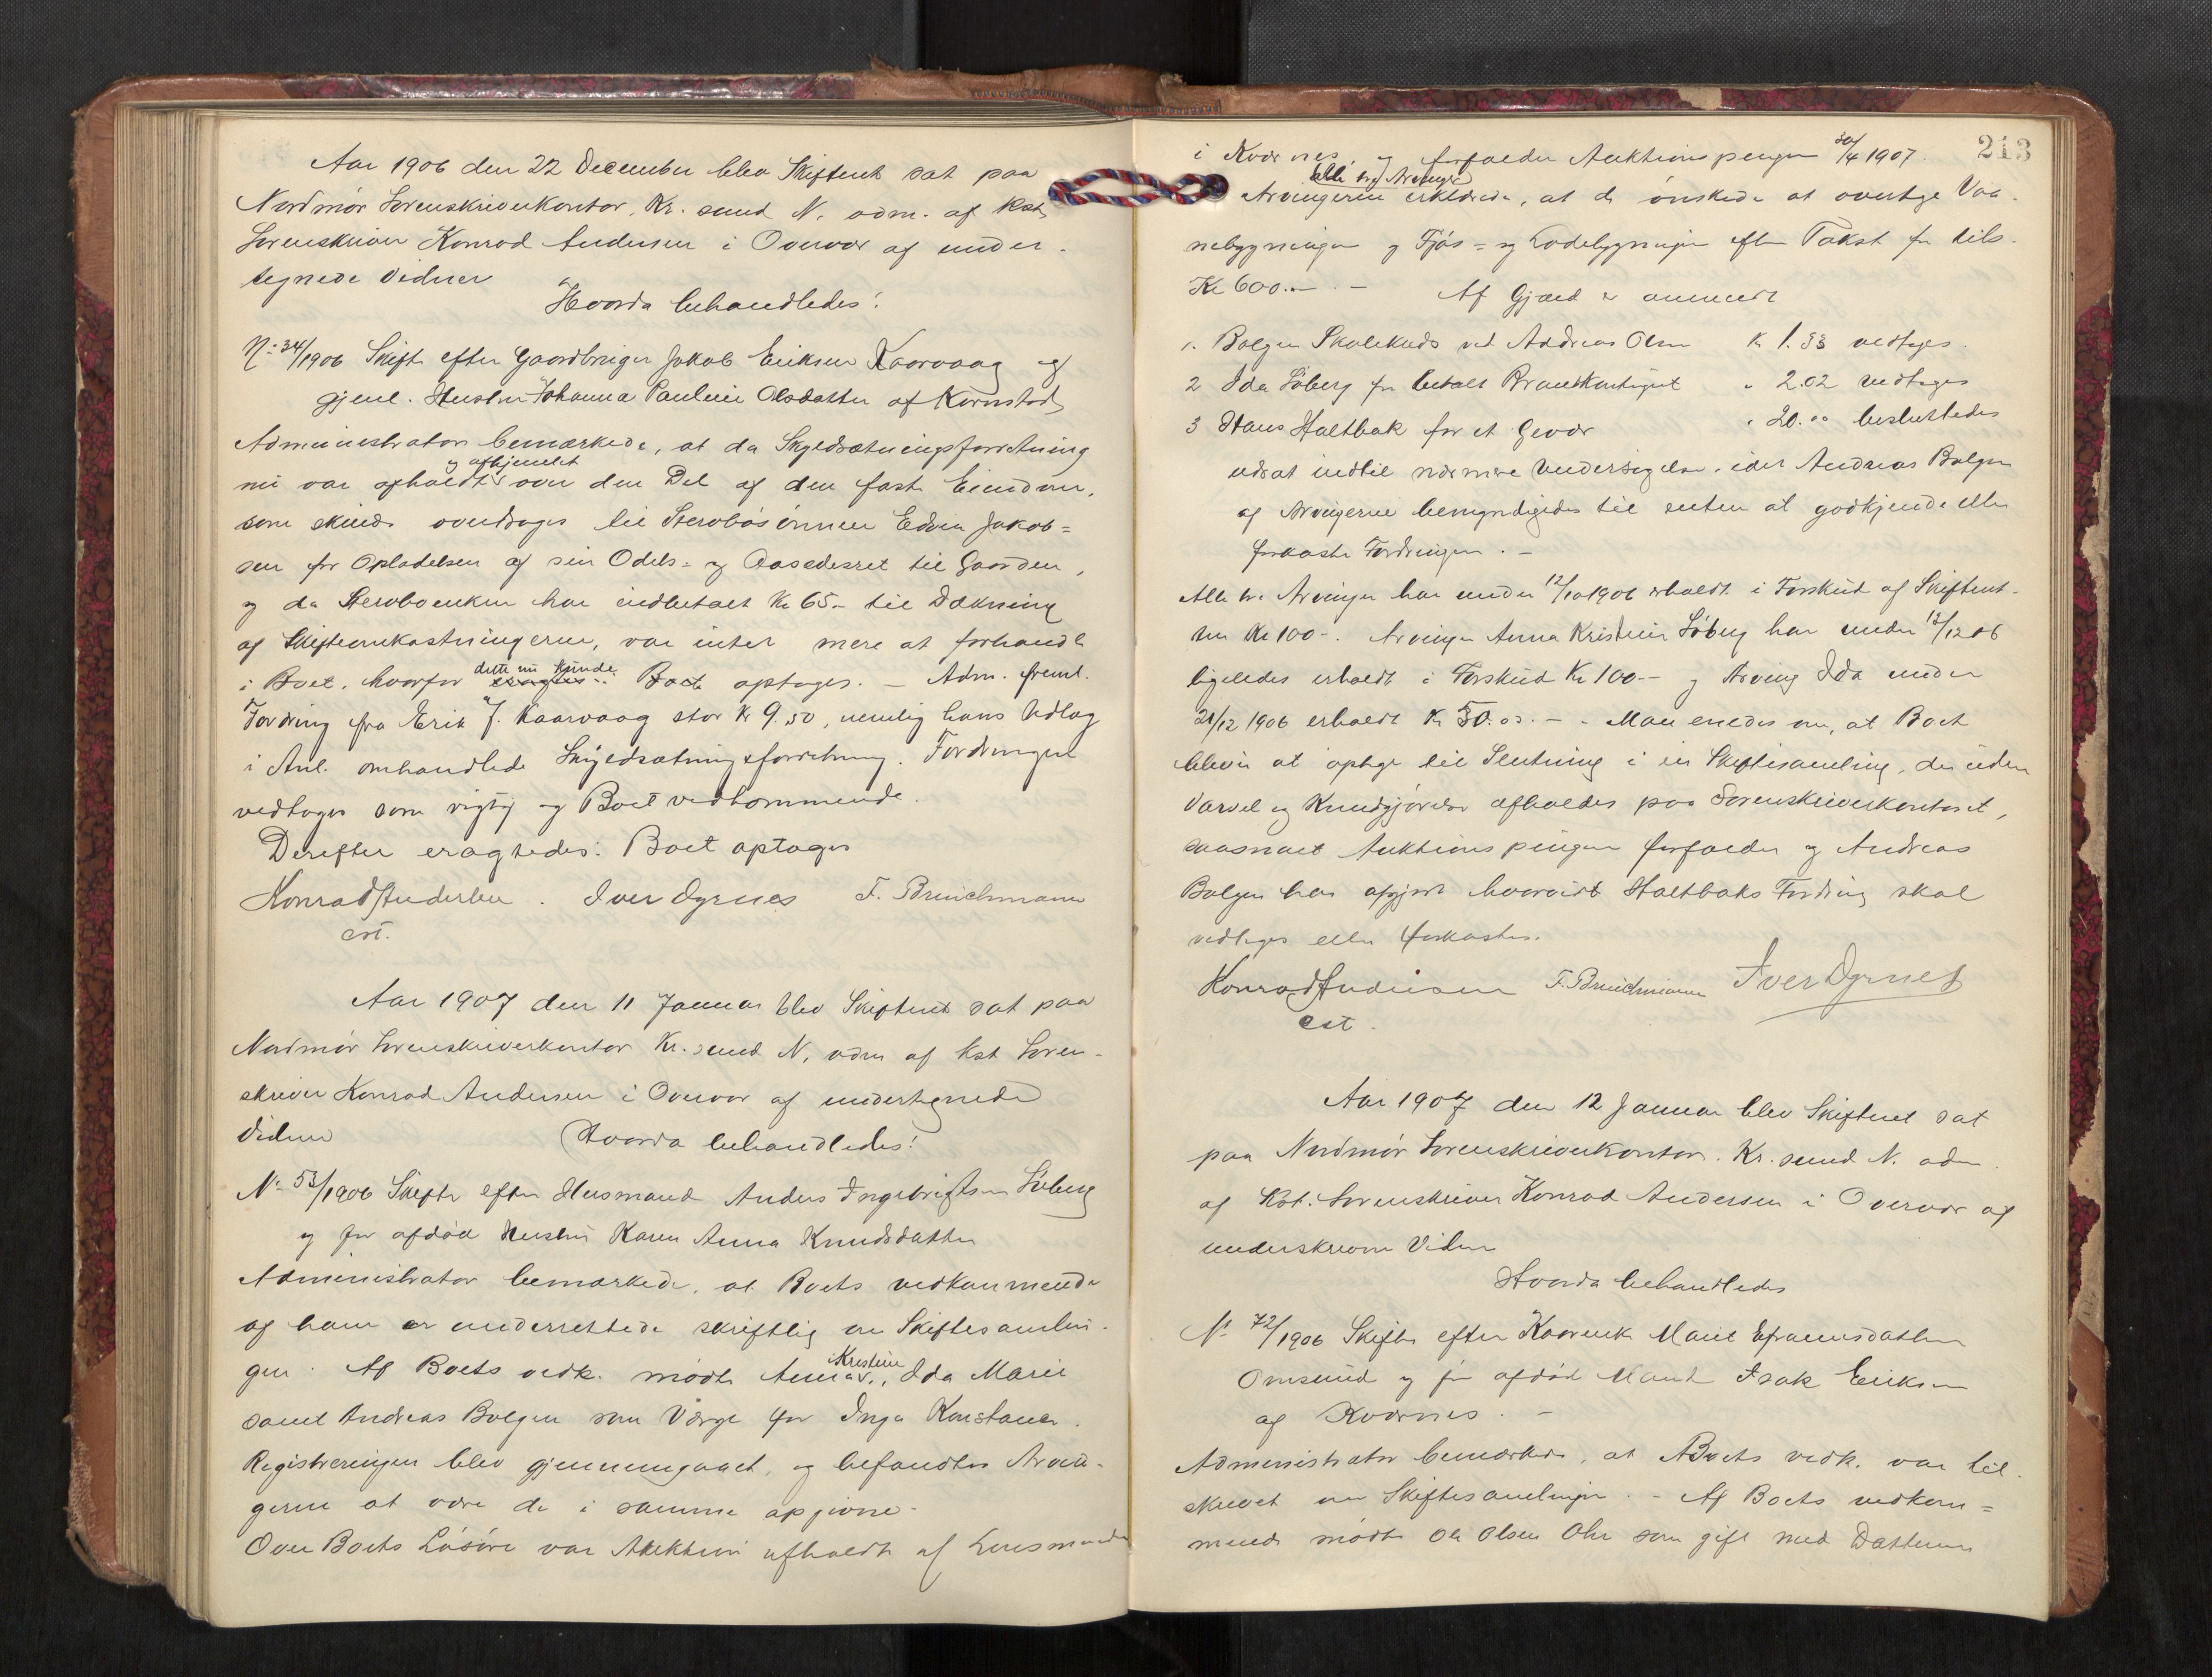 Aar 1906 den 22 December blev Skifteret sat paa
Nordmør Sorenskriverkontor, Kr. sund N. adm. af kst
Sorenskriver Konrad Andersen i Overvær af under-
tegnede Vidner
Hvorda behandledes:
No 34/1906 Skifte efter Gaardbruger Jakob Eriksen Kaarvaag og
gjenl. Hustru Johanna Pauline Olsdatter af Kornstad
Administrator bemærkede, at da Skyldsætningsforretning
og afhjemlet
nu var afholdt over den Del af den faste Eiendom,
som skulde overdrages til Stervbøsønnen Edvin Jakob=
sen for Opladelsen af sin Odels- og Aasædesret til Gaarden,
og da Stervboenken har indbetalt Kr 65.- til Dækning
af Skifteomkostningerne, var intet mere at forhandle
dette nu kunde
i Boet, hvorfor eragtes: Boet optages. - Adm. freml.
Fordring fra Erik J. Kaarvaag stor Kr 9.50, nemlig hans Udlæg
i Anl. omhandlede Skyldsætningsforretning. Fordringen
vedtoges som rigtig og Boet vedkommende.
Derefter eragtedes: Boet optages
Konrad Andersen. Iver Dyrnes F. Breichmann
cst.
Aar 1907 den 11 Januar blev Skifteret sat paa
Nordmør Sorenskriverkontor Kr. sund N. adm af kst Soren-
skriver Konrad Andersen i Overvær af undertegnede
Vidner Hvorda behandledes:
No 53/1906 Skifte efter Husmand Anders Ingebrigtsen Søberg
og før afdød Hustru Karen Anna Knudsdatter
Administrator bemærkede, at Boets vedkommende
af ham er underrettede skriftlig om Skiftesamlin-
Kristine
gen. Af Boets vedk. mødte Anna, Ida Marie
samt Andreas Bolgen som Værge for Inga Konstance.
Registreringen blev gjennemgaaet, og befandtes Arvin-
gerne at være de i samme opgivne-
Over Boets Løsøre var Auktion afholdt af Lensmanden
213
i Kværnes, og forfalder Auktionspengene 30/4 1907.
alle tre Arvinger
Arvingerne erklærede, at de ønskede at overtage Vaa-
nebygningen og Fjøs- og Ladebygningen efter Takst for tils.
Kr 600.- - Af Gjæld er anmeldt
1. Bolgen Skolekreds ved Andreas Olsen Kr 1.33 vedtoges.
2 Ida Søberg for betalt Brandkontingent " 2.02 vedtoges
3 Hans Holtbak for et Gevær " 20.00 besluttedes
udsat indtil nærmere Undersøgelse, idet Andreas Bolgen
af Arvingerne bemyndigedes til enten at godkjende eller
forkaste Fordringen. -
Alle tre Arvinger har under 12/10 1906 erholdt i Forskud af Skifteret-
ten Kr 100-. Arvingen Anna Kristine Søberg har under 13/12 06
ligeledes erholdt i Forskud Kr 100- og Arving Ida under
21/12 1906 erholdt Kr 50.00. - - Man enedes om, at Boet
bliver at optage til Slutning i en Skiftesamling, der uden
Varsel og Kundgjørelse afholdes paa Sorenskriverkontoret,
saasnart Auktionspengene forfalder og Andreas
Bolgen har afgjort hvorvidt Holtbaks Fordring skal
vedtages eller forkastes.
Konrad Andersen F. Breichmann Iver Dyrnes
cst.
Aar 1907 den 12 Januar blev Skifteret sat
paa Nordmør Sorenskriverkontor. Kr. sund N. adm.
af Kst. Sorenskriver Konrad Andersen i Overvær af
underskrevne Vidner
Hvorda behandledes
No 72/1906 Skifte efter Kaarenke Marit Efraimsdatter
Omsund og før afdød Mand Isak Eriksen
af Kværnes. -
Administrator bemærkede, at Boets vedk. var til-
skrevet om Skiftesamlingen. - Af Boets vedkom=
mende mødte Ole Olsen Ohr som gift med Datteren